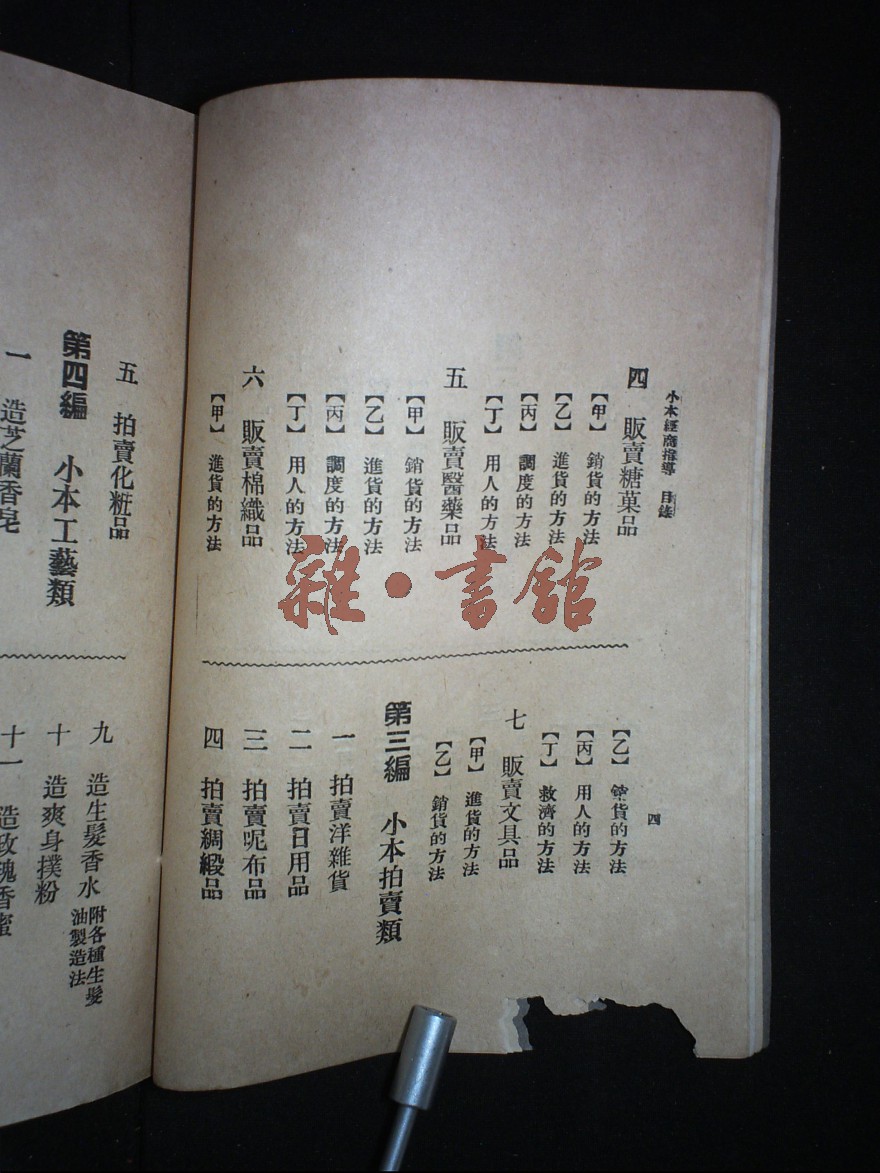 小本經商指導 目錄
四
四 販賣糖菓品
【甲】 銷貨的方法
【乙】 進貨的方法
【丙】 調度的方法
【丁】 用人的方法
五 販賣醫藥品
【甲】 銷貨的方法
【乙】 進貨的方法
【丙】 調度的方法
【丁】 用人的方法
六 販賣棉織品
【甲】 進貨的方法
【乙】 銷貨的方法
【丙】 用人的方法
【丁】 救濟的方法
七 販賣文具品
【甲】 進貨的方法
【乙】 銷貨的方法
第三編 小本拍賣類
一 拍賣洋雜貨
二 拍賣日用品
三 拍賣呢布品
四 拍賣綢緞品
五 拍賣化粧品
第四編 小本工藝類
一 造芝蘭香皂
九 造生髮香水 附各種生髮油製造法
十 造爽身撲粉
十一 造玫瑰香蜜
雜·書館